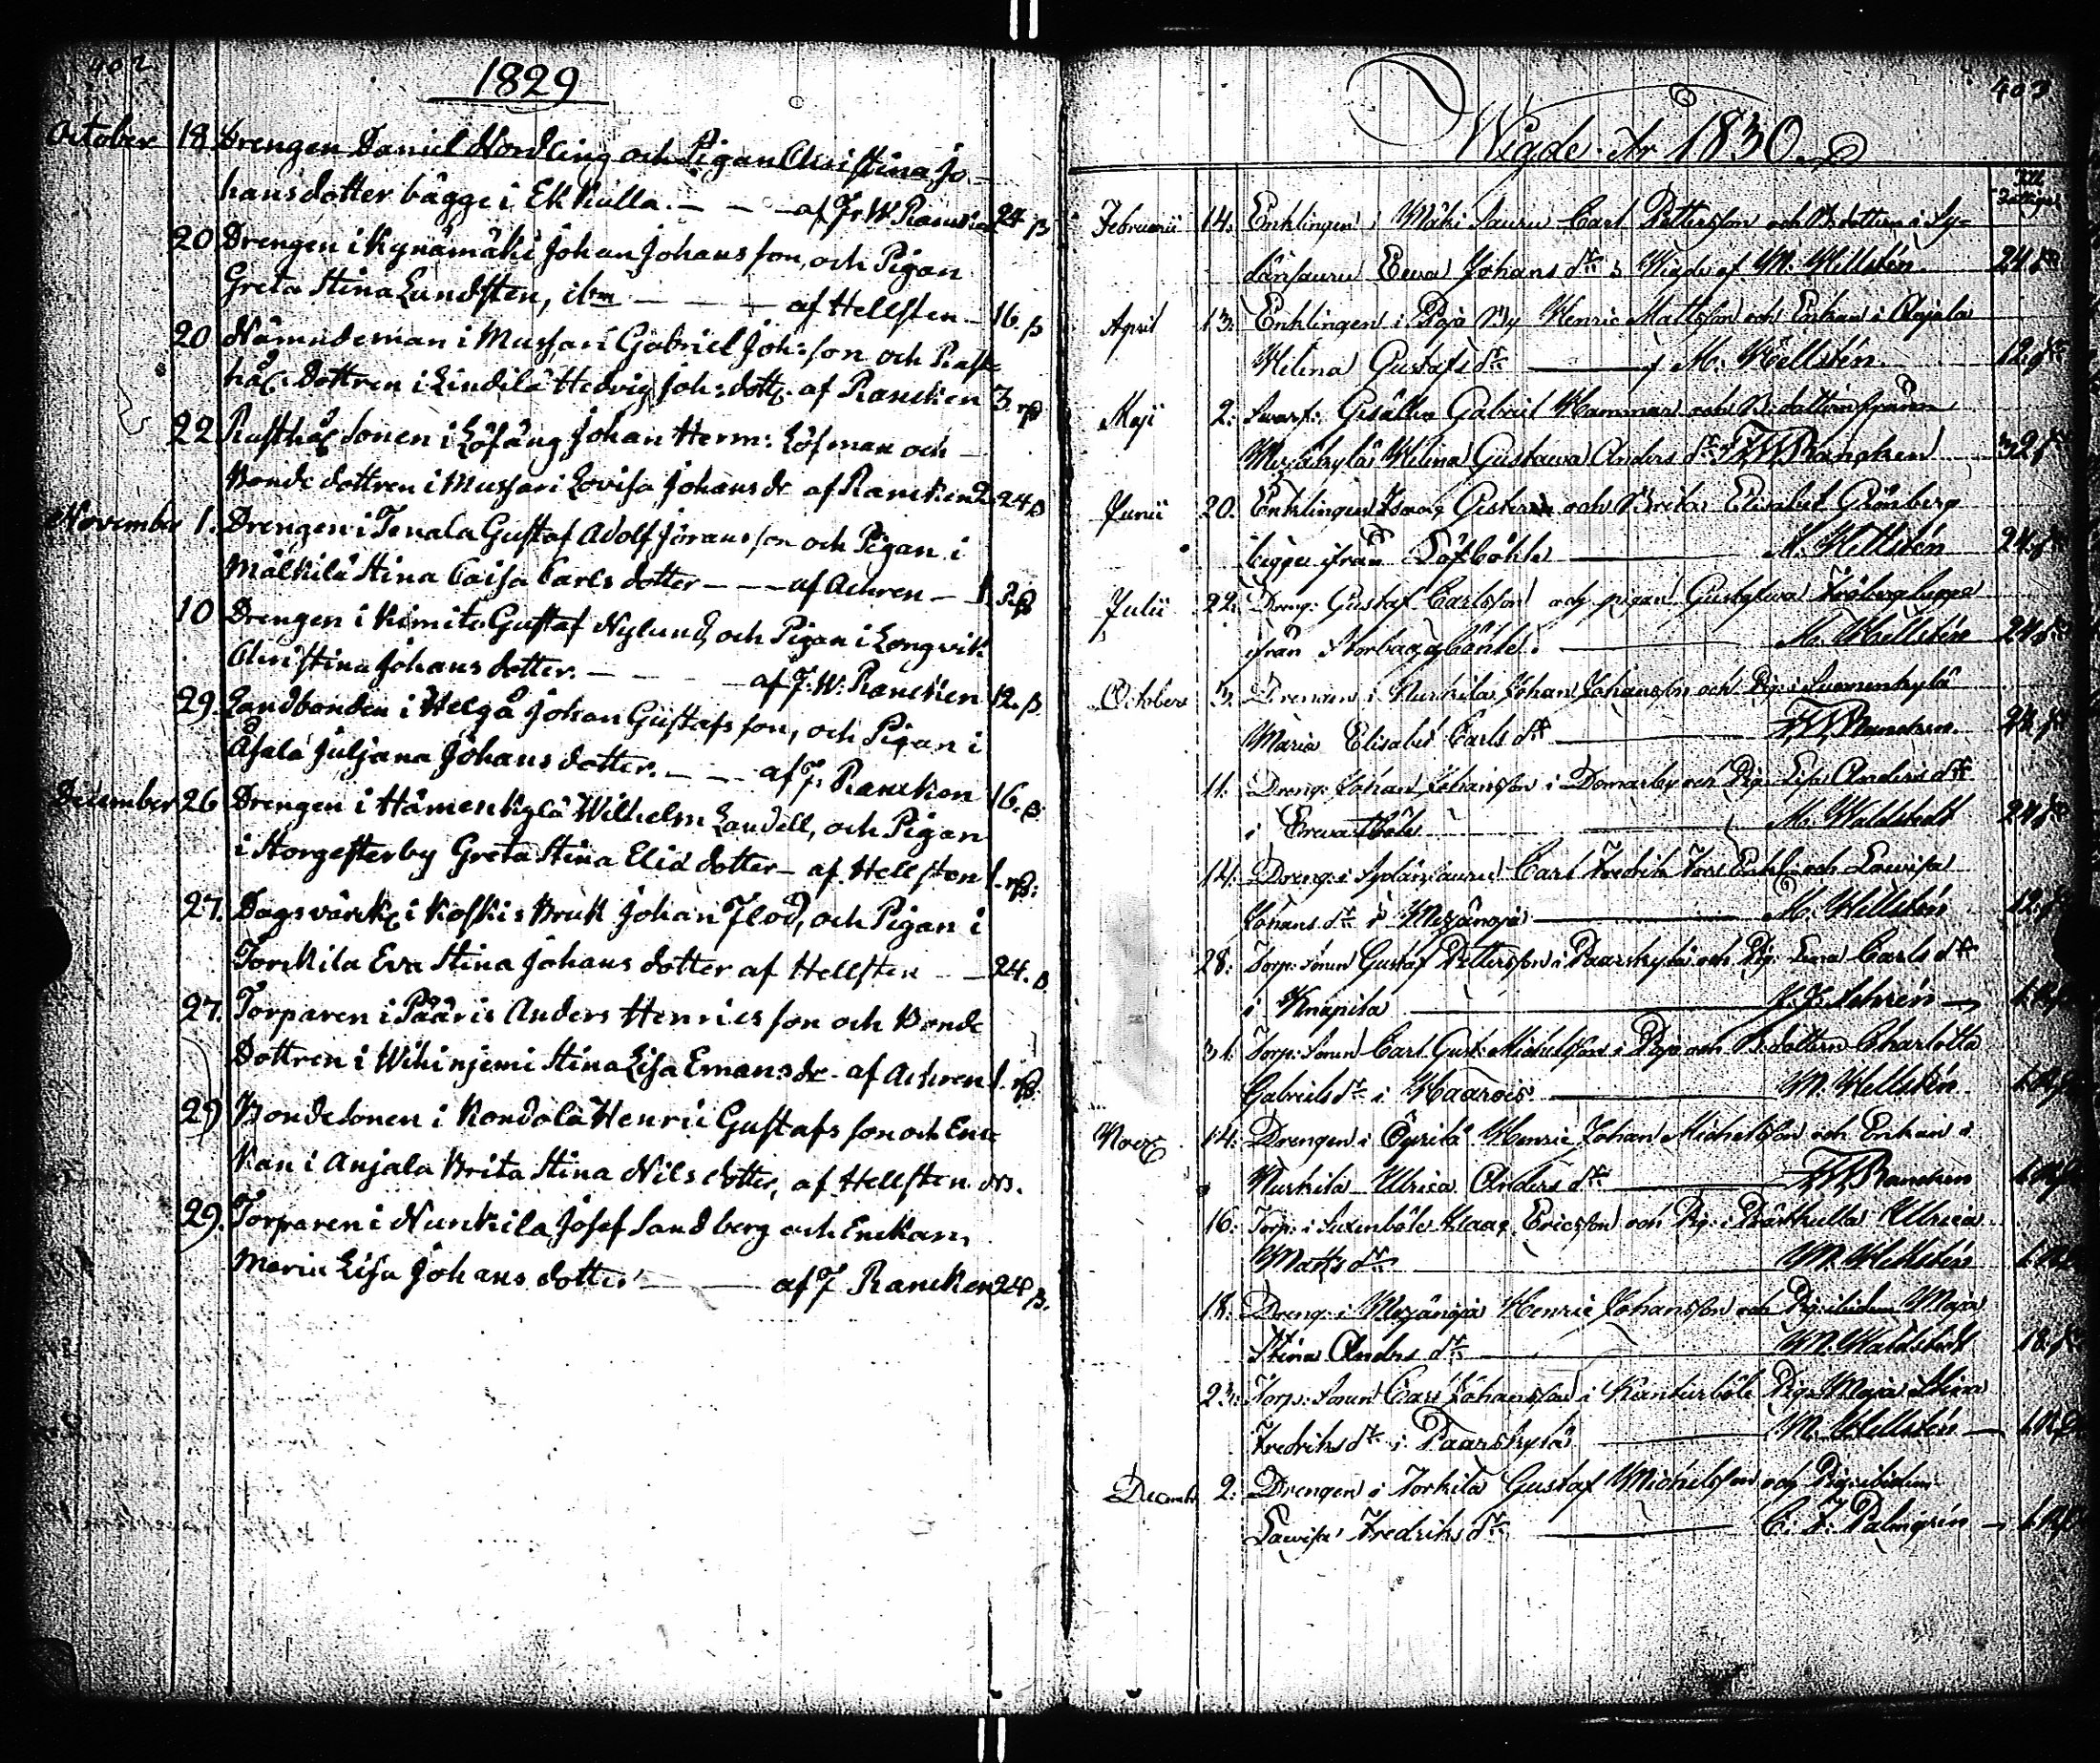 402
1829
October 18 Drengen Daniel Nordling och Pigan Christina Jo-
hansdotter bägge i Ekkulla. — — af Fr W. Rancken 24 β
20 Drengen i Kynämäki Johan Johansson, och Pigan
Greta Stina Lundsten, ibm — — — af Hellsten — 16. β
20 Nämndeman i Mussari Gabriel Joh:son och Rust-
håll. Dottren i Lindilä Hedvig Joh: dott. af Rancken 3.
22 Rusthåll sonen i Löfäng Johan Herm: Löfman och
Bonde dottren i Mussari Lovisa Johans dr af Rancken 2. 24 β
November 1. Drengen i Tenala Gustaf Adolf Jöransson och Pigan i
Mälkilä Stina Caisa Carls dotter — — — af Achren —
10 Drengen i Kimito Gustaf Nylund, och Pigan i Longvik
Christina Johans dotter. — — — af F: W: Rancken 12. β
29. Landbonden i Helgå Johan Gustafs son, och Pigan i
Åfala Juljana Johans dotter. — — af F: Rancken 16. β
December 26 Drengen i Hämenkylä Wilhelm Landell, och Pigan
i Storgesterby Greta Stina Elid dotter — af Hellsten 1.
27. Dagsvärk i Koskis Bruk Johan Flod, och Pigan i
Torkkila Eva Stina Johans dotter af Hellsten — 24. β
27. Torparen i Pääris Anders Henrics son och Bonde
Dottren i Wihinjemi Stina Lisa Emans dr — af Achren 1.
29 Bondesonen i Kondola Henric Gustafs son och Enc-
kan i Anjala Brita Stina Nils dotter, af Hellsten
29. Torparen i Nunkila Josef Sandberg och Enckan,
Maria Lisa Johans dotter — — af F Rancken 24 β.
403
Wigde År 1830.
Februarii 14. Enklingen i Mäki Sauru Carl Pettersson och B.dottren i Sy-
dänsauru Eewa Johans dr Wigde af M. Hellstén. 24
April 13. Enklingen i Pojo By Henric Mattsson och Enkan i Anjala
Helena Gustafs dr — M. Hellstén. 12.
Maji 2: Gesällen Gabriel Hammar och B.dottren från
Helena Gustawa Anders dr F W Rancken 32
Junii 20. Enklingen Isaac och Brita Elisabet Grönberg
begge ifrån Löfböhle — M. Hellstén 24.
Julii 22. Dreng: Gustaf Carlsson och pigan Gustafwa
ifrån — M. Hellstén 24
October 3. Drengen i Nurkila Johan Johansson och Pig: i Suomenkylä
Maria Elisabet Carls dr — F W Rancken. 24
11. Dreng: Johan Johansson i Domarby och Pig: Lisa Anders dr
i — M. Waldstedt 24
14. Dreng: i Sydänsauru Carl Fredrik och Lowisa
Johans dr i — M. Hellstén 12.
28: Torp: Sonen Gustaf Pettersson i Paarskylä och Pig: Lena Carls dr
i Knapila — Achrén —
31. Torp: Sonen Carl Gust: Michelsson i Pojo och B:dottren Charlotta
Gabriels dr i Haarois — M. Hellstén
Nov 14. Drengen i Öysilä Henric Johan Michelsson och Enkan i
Nurkila Ulrica Anders dr — F W Rancken
16. Torp: i Suxenböle Ericsson och Pig: i Prästkulla Ulrica
Matts dr — M. Hellstén
18. Dreng: i Henric Johansson och Pig: ibidem Maja
Stina Anders dr — M. Waldstedt 18.
23: Torp: Sonen Carl Johansson i Pig: Maja Stina
Fredriks dr i Paarskylä — M. Hellstén —
December 2: Drengen i Torkila Gustaf Michelsson och Pig: ibidem
Lowisa Fredriks dr — C. F. Palmgrén —